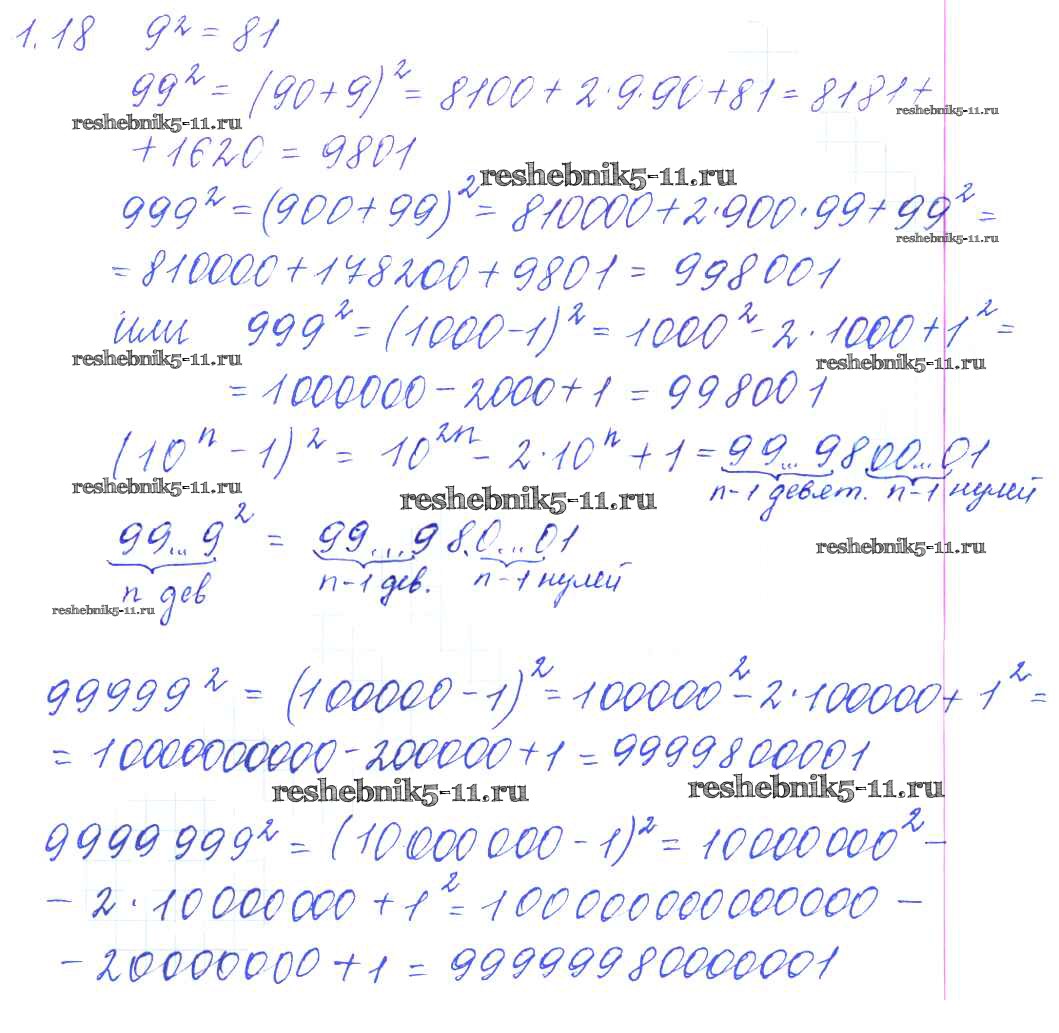 1.18 9² = 81
99² = (90+9)² = 8100 + 2·9·90 + 81 = 8181 +
reshebnik5-11.ru reshebnik5-11.ru
+ 1620 = 9801
reshebnik5-11.ru
999² = (900 + 99)² = 810000 + 2·900·99 + 99² =
reshebnik5-11.ru
= 810000 + 178200 + 9801 = 998001
или 999² = (1000 - 1)² = 1000² - 2·1000 + 1² =
reshebnik5-11.ru reshebnik5-11.ru
= 1000000 - 2000 + 1 = 998001
(10ⁿ - 1)² = 10²ⁿ - 2·10ⁿ + 1 = 99...9800...01
reshebnik5-11.ru n-1 девят. n-1 нулей
reshebnik5-11.ru
99...9² = 99...980...01
reshebnik5-11.ru
n дев n-1 дев. n-1 нулей
reshebnik5-11.ru
99999² = (100000 - 1)² = 100000² - 2·100000 + 1² =
= 10000000000 - 200000 + 1 = 9999800001
reshebnik5-11.ru reshebnik5-11.ru
9999999² = (10000000 - 1)² = 10000000² -
- 2·10000000 + 1² = 100000000000000 -
- 20000000 + 1 = 99999980000001